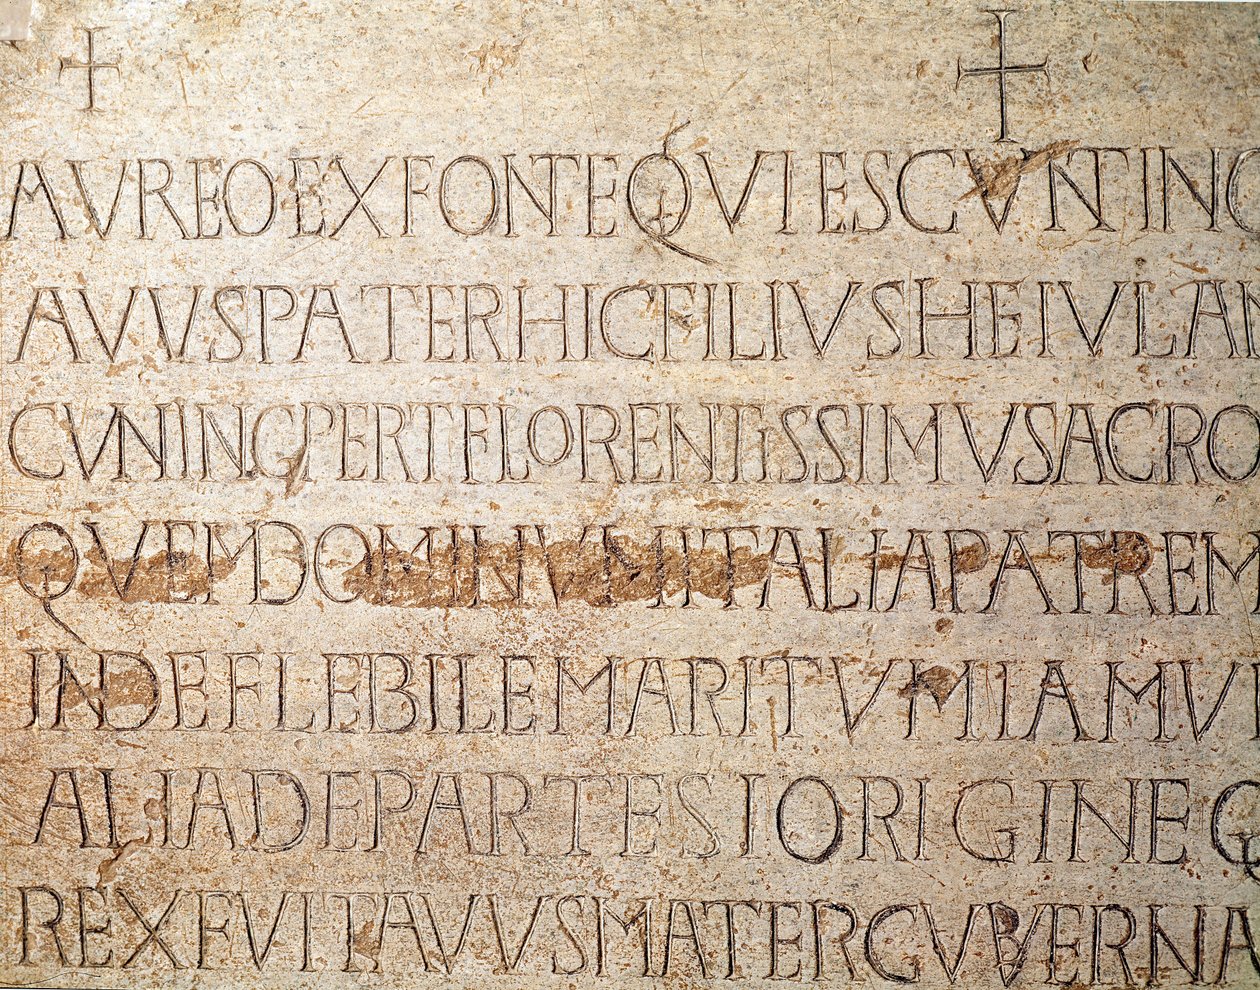 AVREOEXFONTEQVIESCVNTINO
AVVSPATERHICFILIVSHEIVLAN
CVNINGPERTFLORENTISSIMVSACRO
QVEMDOMINVMITALIAPATREM
INDEFLEBILEMARITVMIAMVI
ALIADEPARTESIORIGINEQ
REXFVITAVVSMATERGVBERNA